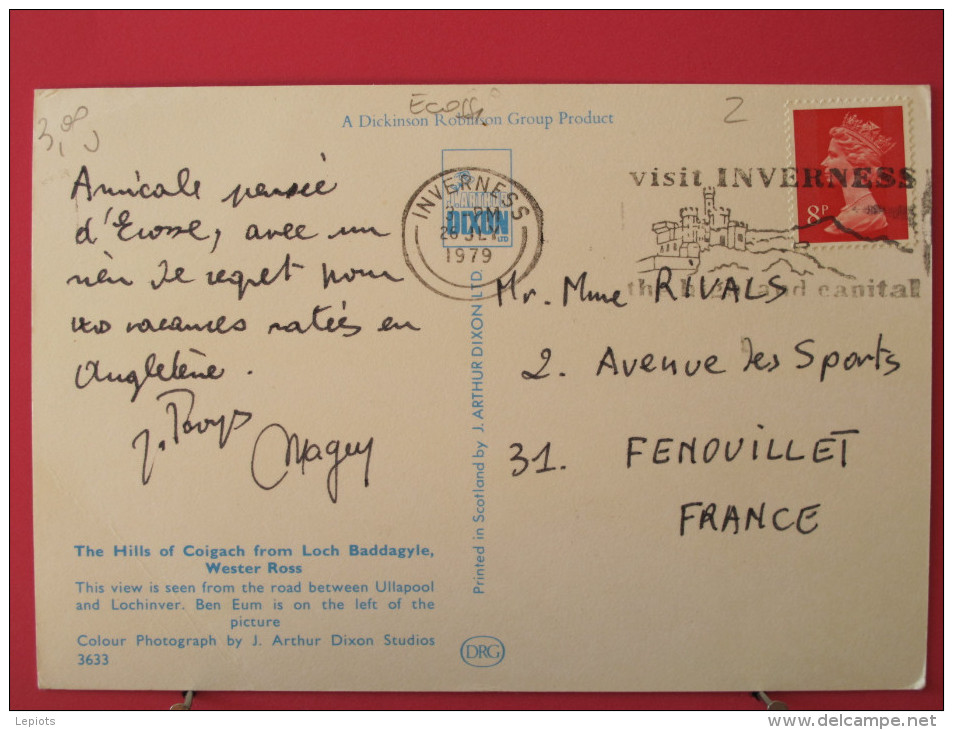 3,00
Ecosse
2
A Dickinson Robinson Group Product
Amicale pensée
d'Ecosse, avec un
rien de regret pour
vos vacances ratées en
Angleterre.
Maguy
The Hills of Coigach from Loch Baddagyle,
Wester Ross
This view is seen from the road between Ullapool
and Lochinver. Ben Eum is on the left of the
picture
Colour Photograph by J. Arthur Dixon Studios
3633
J. ARTHUR
DIXON
LTD
INVERNESS
PM
1979
Printed in Scotland by J. ARTHUR DIXON LTD.
DRG
visit INVERNESS
the highland capital
8P
Mr. Mme RIVALS
2. Avenue des Sports
31. FENOUILLET
FRANCE
Lepiots
www.delcampe.net